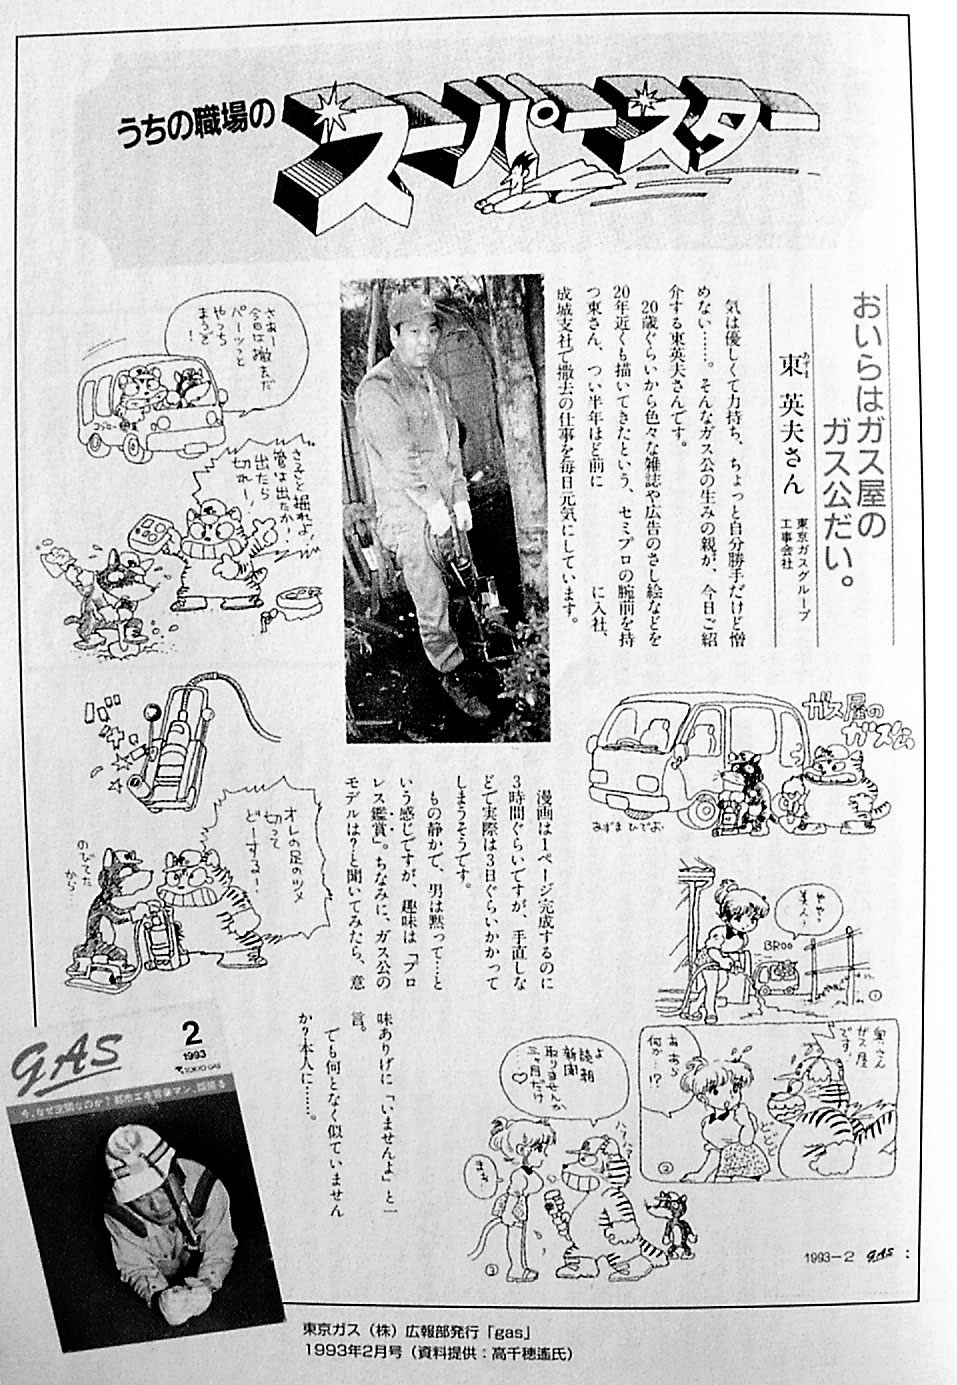 うちの職場の
スーパースター
おいらはガス屋の
ガス公だい。
あずま
東 英夫さん
東京ガスグループ
工事会社
気は優しくて力持ち、ちょっと自分勝手だけど憎
めない……。そんなガス公の生みの親が、今日ご紹
介する東英夫さんです。
20歳ぐらいから色々な雑誌や広告のさし絵などを
20年近くも描いてきたという、セミプロの腕前を持
つ東さん、つい半年ほど前に に入社、
成城支社で撤去の仕事を毎日元気にしています。
漫画は1ページ完成するのに
3時間ぐらいですが、手直しな
どで実際は3日ぐらいかかって
しまうそうです。
もの静かで、男は黙って…と
いう感じですが、趣味は「プロ
レス鑑賞」。ちなみに、ガス公の
モデルは?と聞いてみたら、意
味ありげに「いませんよ」と一
言。
でも何となく似ていません
か?本人に……。
さあー
今日は撤去だ
パーツっと
やっち
まうぞ
!
さっさと掘れよ!
管は出たか!
出たら
切れー!
オレの足のツメ
切って
どーする!
のびてた
から…
ガス屋の
ガス公
あずま ひでお
やや!
美人!
BROO
①
奥さん
ガス屋
です!
あ あら
何か…!?
②
よ
読朝
新聞
取りませんか
三ヶ月だけ
…♡
まあ
③
1993－2 GAS
GAS
2
1993
TOKYO GAS
東京ガス（株）広報部発行「gas」
1993年2月号（資料提供：高千穂遙氏）